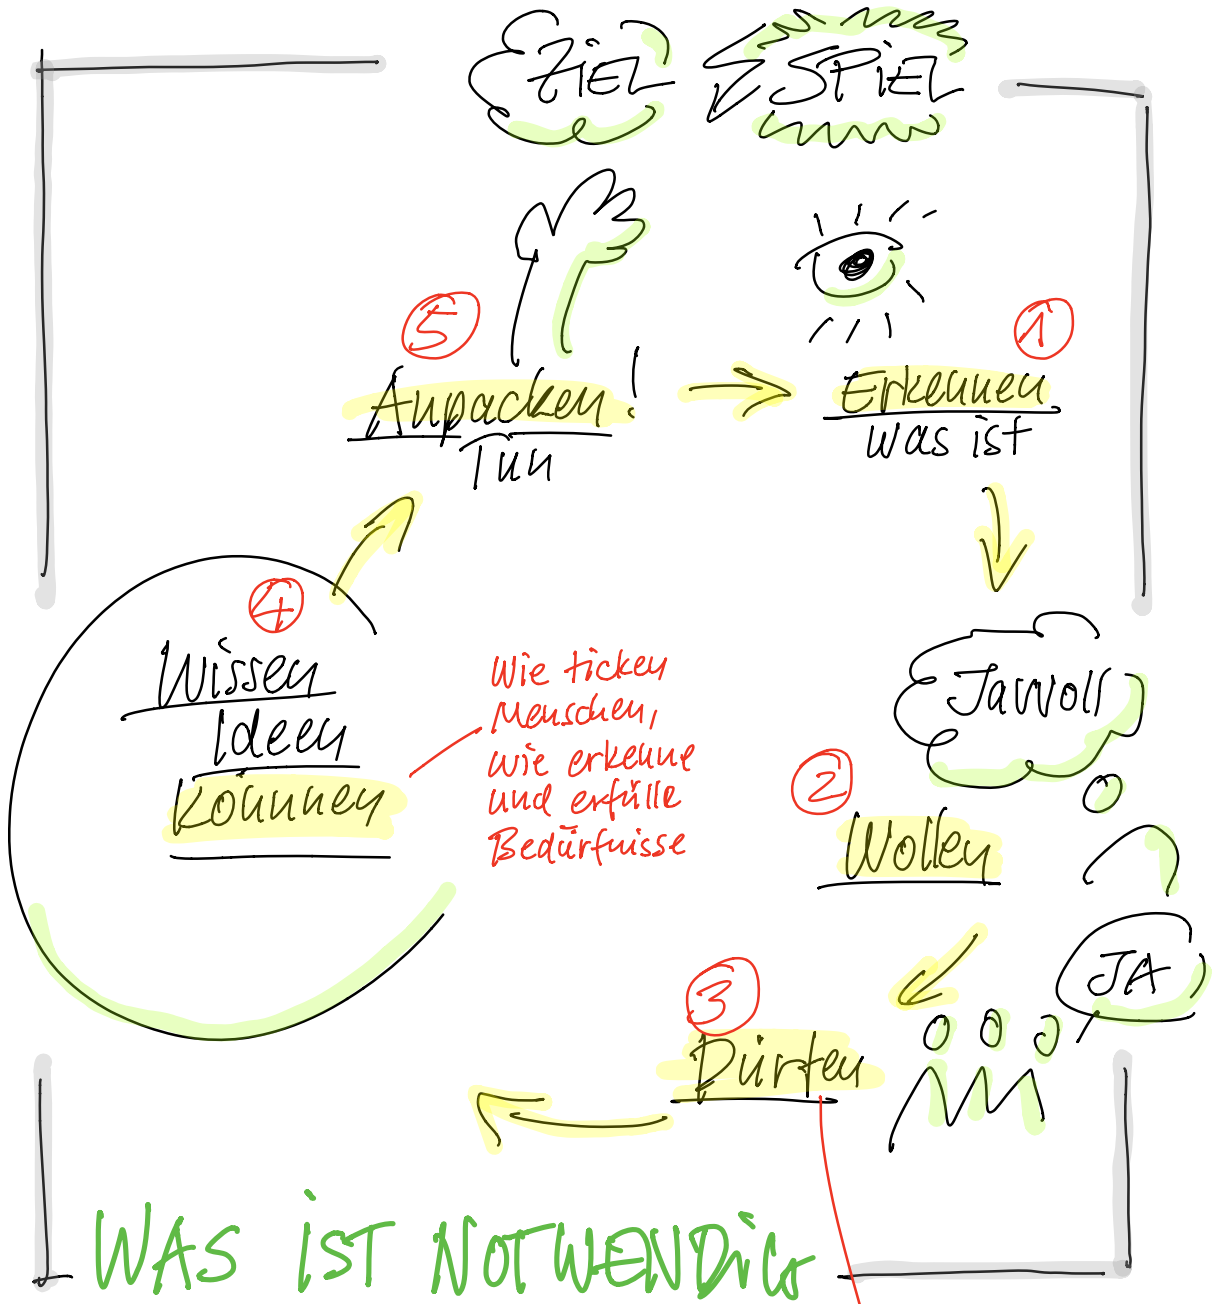 ZIEL SPIEL
5
Anpacken!
Tun
1
Erkennen
was ist
Jawoll
2
Wollen
JA
3
Dürfen
4
Wissen
Ideen
Können
Wie ticken
Menschen,
wie erkenne
und erfülle
Bedürfnisse
WAS IST NOTWENDIG